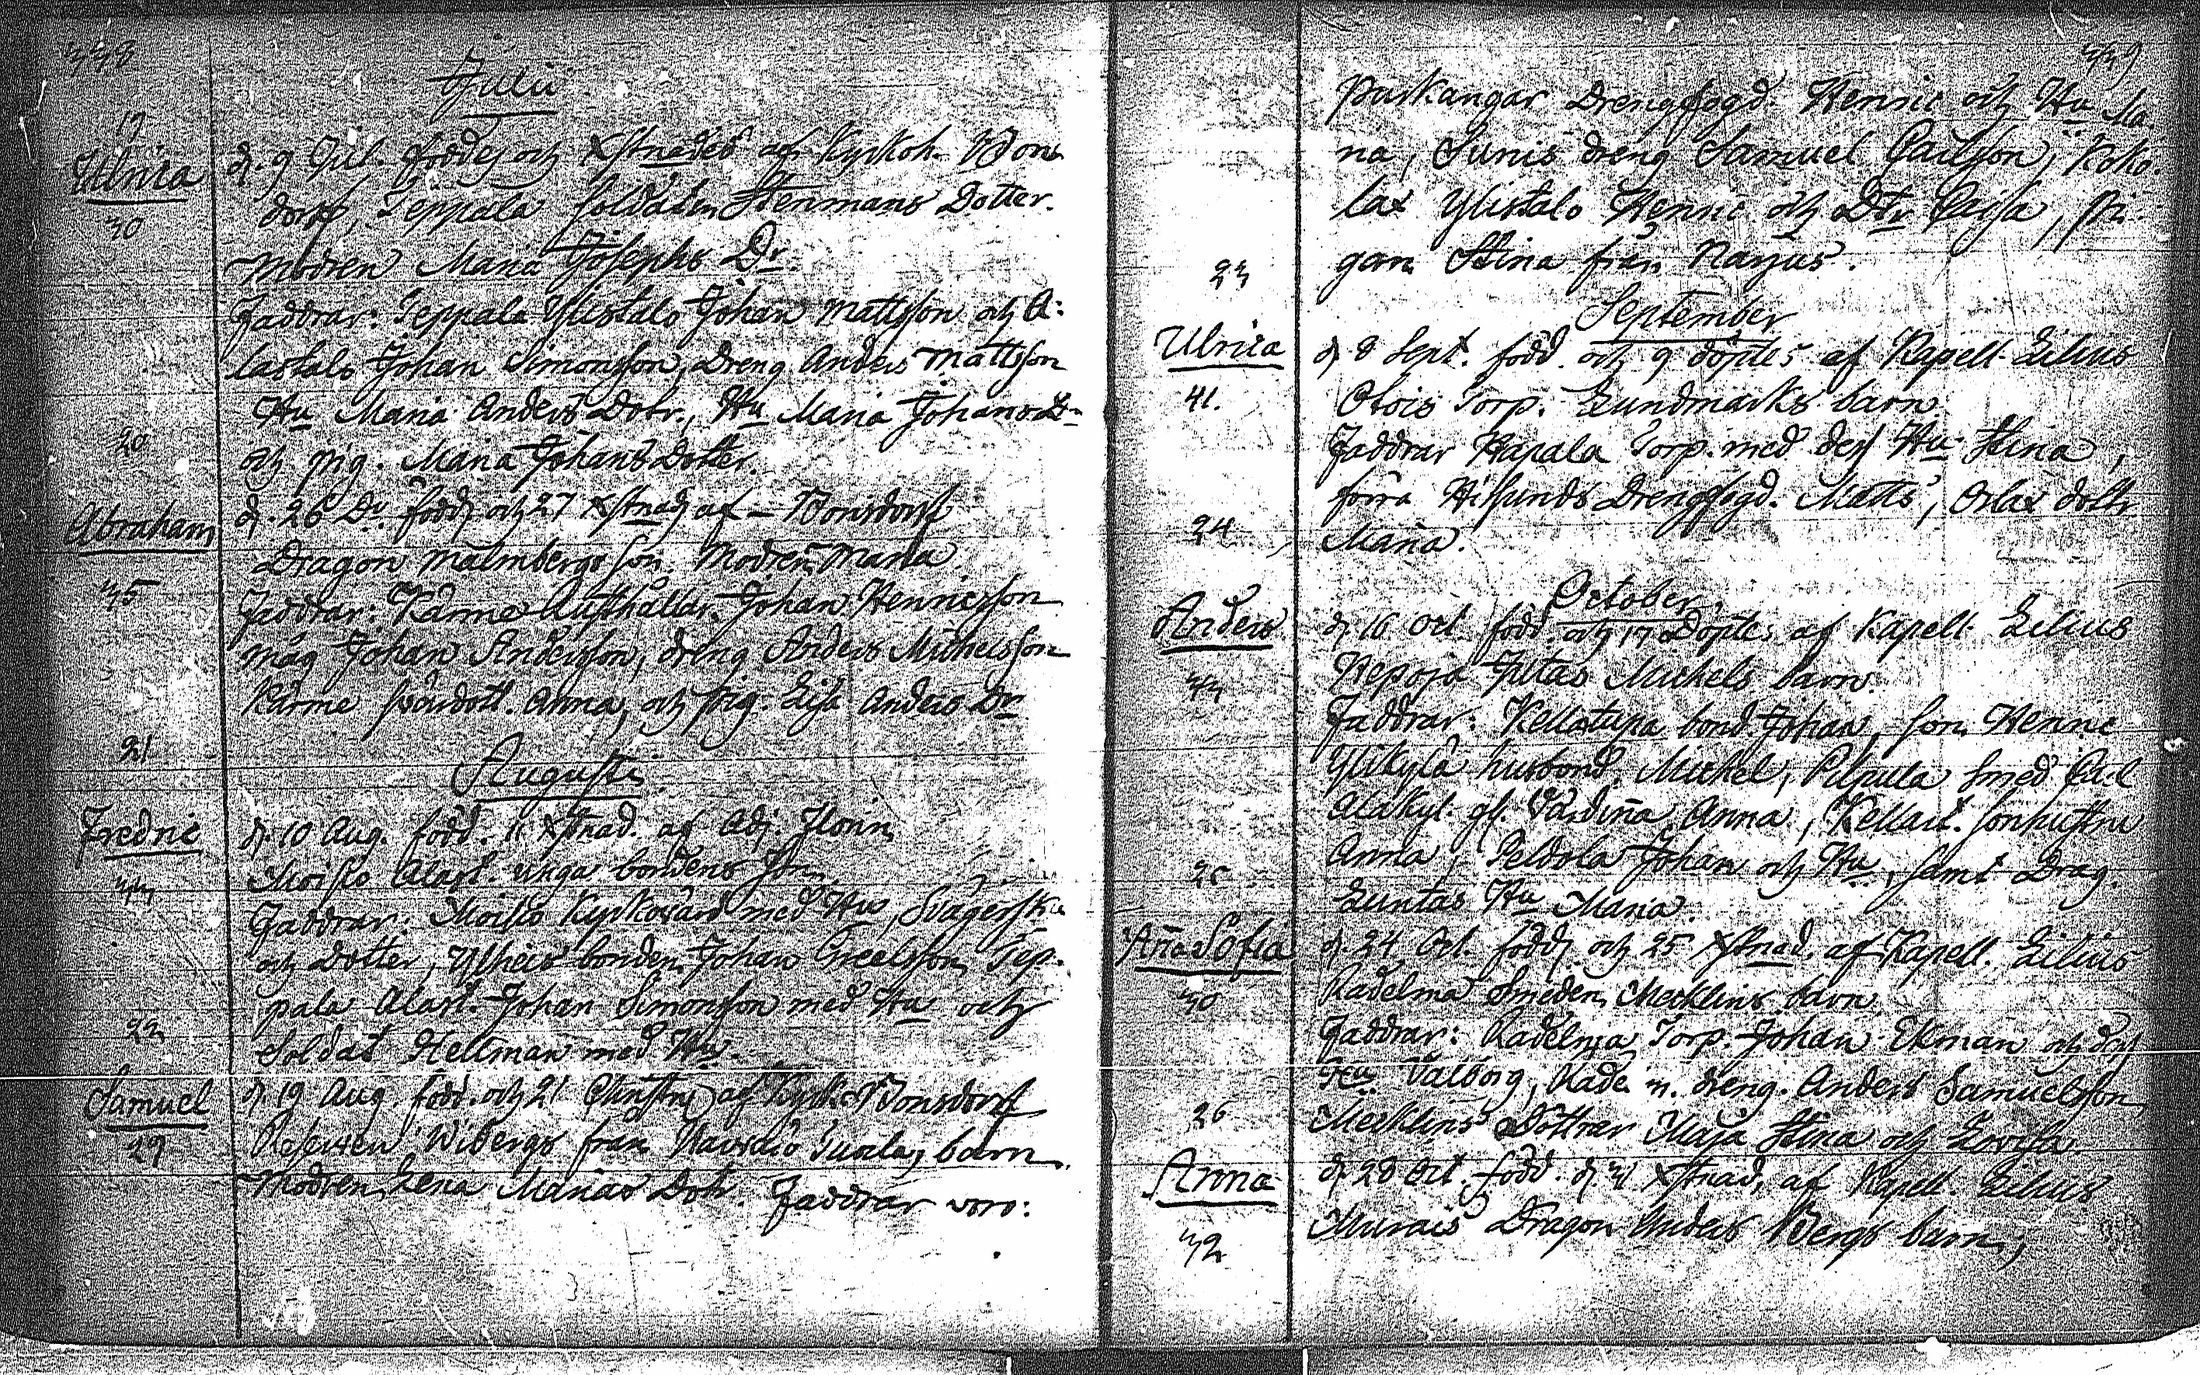 338
Julii
19
Ulrica
30
d. 9 Jul. föddes och Xstnades af Kyrkoh. Bons
dorf, Seppälä Soldaten Stenmans Dotter.
Modren Maria Josephs Dr.
Faddrar: Seppala Ylistalo Johan Mattsson och A:
lastalo Johan Simonsson, Dreng Anders Mattsson
Hu Maria Anders Dotr., Hu Maria Johans Dr
och pig. Maria Johans Dotter.
20
Abraham
35
d. 26 Dº föddes och 27 Xstnades af – Bonsdorf
Dragon Malmbergs son. Modren Maria
Faddrar: Kärme Rusthållar. Johan Henricsson
måg Johan Andersson, dreng Anders Michelsson
Kärme Anna, och pig. Lisa Anders Dr
21
Augusti
Fredric
33
d. 10 Aug. född. 11 Xstnad. af Adj. Florin
Moisio Alast. unga bondens son
Faddrar: Moisio Kyrkovärd med Hu, Svägerska
och Dotter, bonden Johan Sep-
pala Alast. Johan Simonsson med Hu och
Soldat Hellman med Hu.
22
Samuel
29
d. 19 Aug. född. och 21 Christn. af Kyrkoh. Bonsdorf
Wibergs från barn.
Modren Lena Marias Dotr. Faddrar voro:
339
Drengfogd. Henric och Hu Ma
na, Junis dreng Samuel Carlsson, Koko-
lax Ylistalo Henric och Dtr Caisa, Pi-
gan Stina från Narjus.
23
September
Ulrica
41.
d. 8 Sept. född. och 9 döptes af Kapell. Lilius
Torp. Lundmarks barn.
Faddrar Hapala Torp. med dess Hu Stina,
förra Drengfogd. Matts, dottr
Maria.
24
October.
Anders
33
d. 16 Oct. född. och 17 Döptes af Kapell. Lilius
Heporo Michels barn.
Faddrar: Kellotupa bond. Johan, son Henric
Ylikylä husbond. Michel, Smed Carl
Alakyl. gl. Värdina Anna, Kellart. sonhustru
Anna, Peldola Johan och Hu, samt Drag.
Luntas Hu Maria.
25
Aña Sofia
30
d. 24 Oct. föddes och 25 Xstnad. af Kapell. Lilius
Radelma Smeden Mecklins barn.
Faddrar: Radelma Torp. Johan Ekman och dess
Hu Valborg, Rade m. dreng. Anders Samuelsson
Mecklins Döttrar Maja Stina och Lovisa.
26
Anna
32
d. 28 Oct. född. d. 31 Xstnad. af Kapell. Lilius
Murais Dragon Anders Bergs barn,